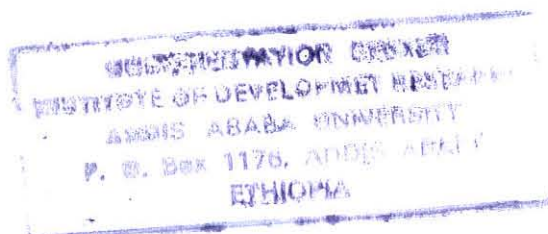 DOCUMENTATION CENTER
INSTITUTE OF DEVELOPMET RESEARCH
ADDIS ABABA UNIVERSITY
P. O. Box 1176, ADDIS ABABA
ETHIOPIA